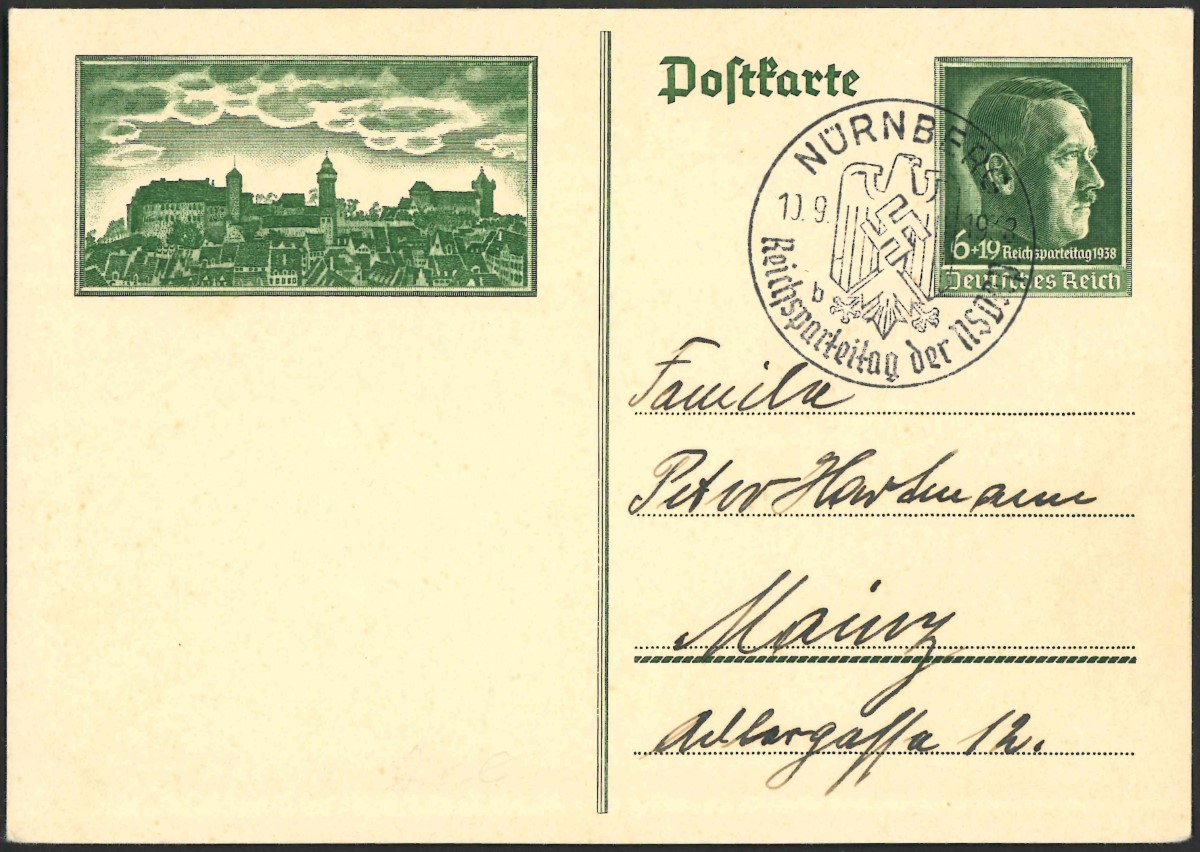 Postkarte
6+19 Reichsparteitag 1938
Deutsches Reich
NÜRNBERG
10.9.1938
b
Reichsparteitag der NSDAP
Familie
Peter Hartmann
Mainz
Adlergasse 12.